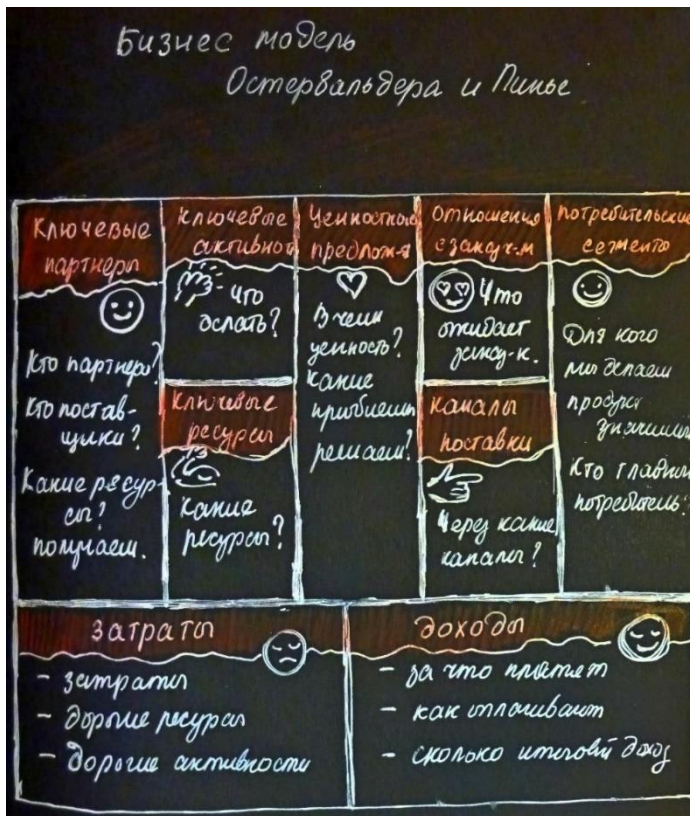 Бизнес модель
Остервальдера и Пинье
Ключевые
партнеры
Кто партнеры?
Кто постав-
щики?
Какие ресур-
сы?
получаем.
Ключевые
активнос
Что
делать?
Ключевые
ресурсы
Какие
ресурсы?
Ценностное
предлож-я
В чем
ценность?
Какие
решаем?
Отношения
с заказч-м
Что
ожидает
заказ-к.
Каналы
поставки
Через какие
каналы?
Потребительские
сегменты
Для кого
мы делаем
продукт
Кто главный
потребитель?
Затраты
- затраты
- дорогие ресурсы
- дорогие активности
Доходы
- за что платят
- как оплачивают
- сколько итоговый доход